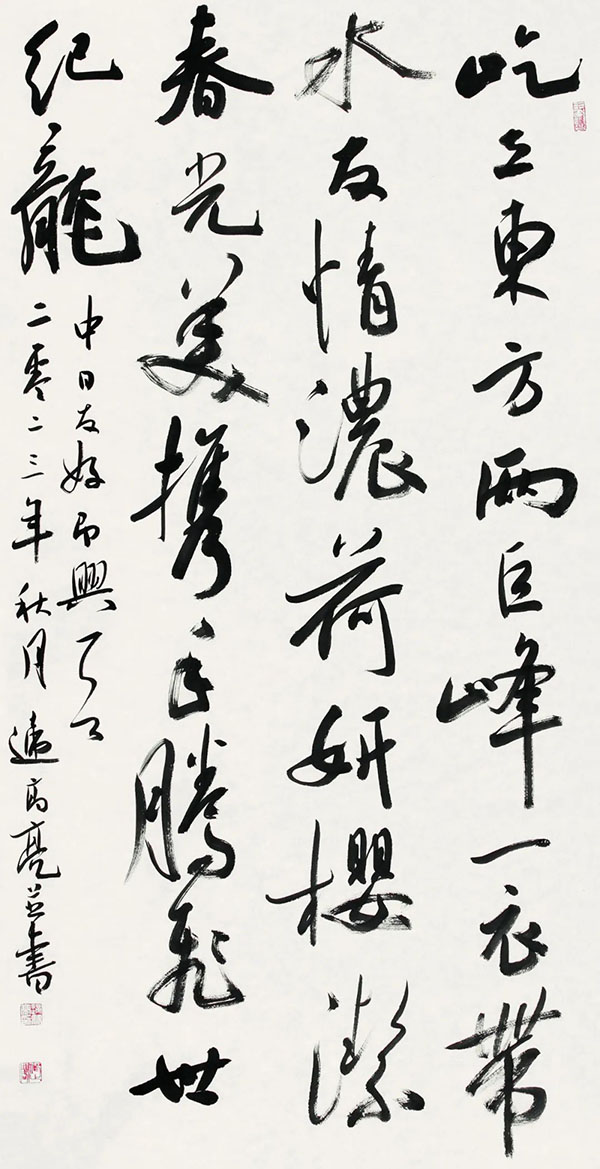 屹立東方兩巨峰一衣帶
水友情濃荷妍櫻潔
春光美携手騰飛世
紀龍
中日友好即興
二零二三年秋月高亮並書